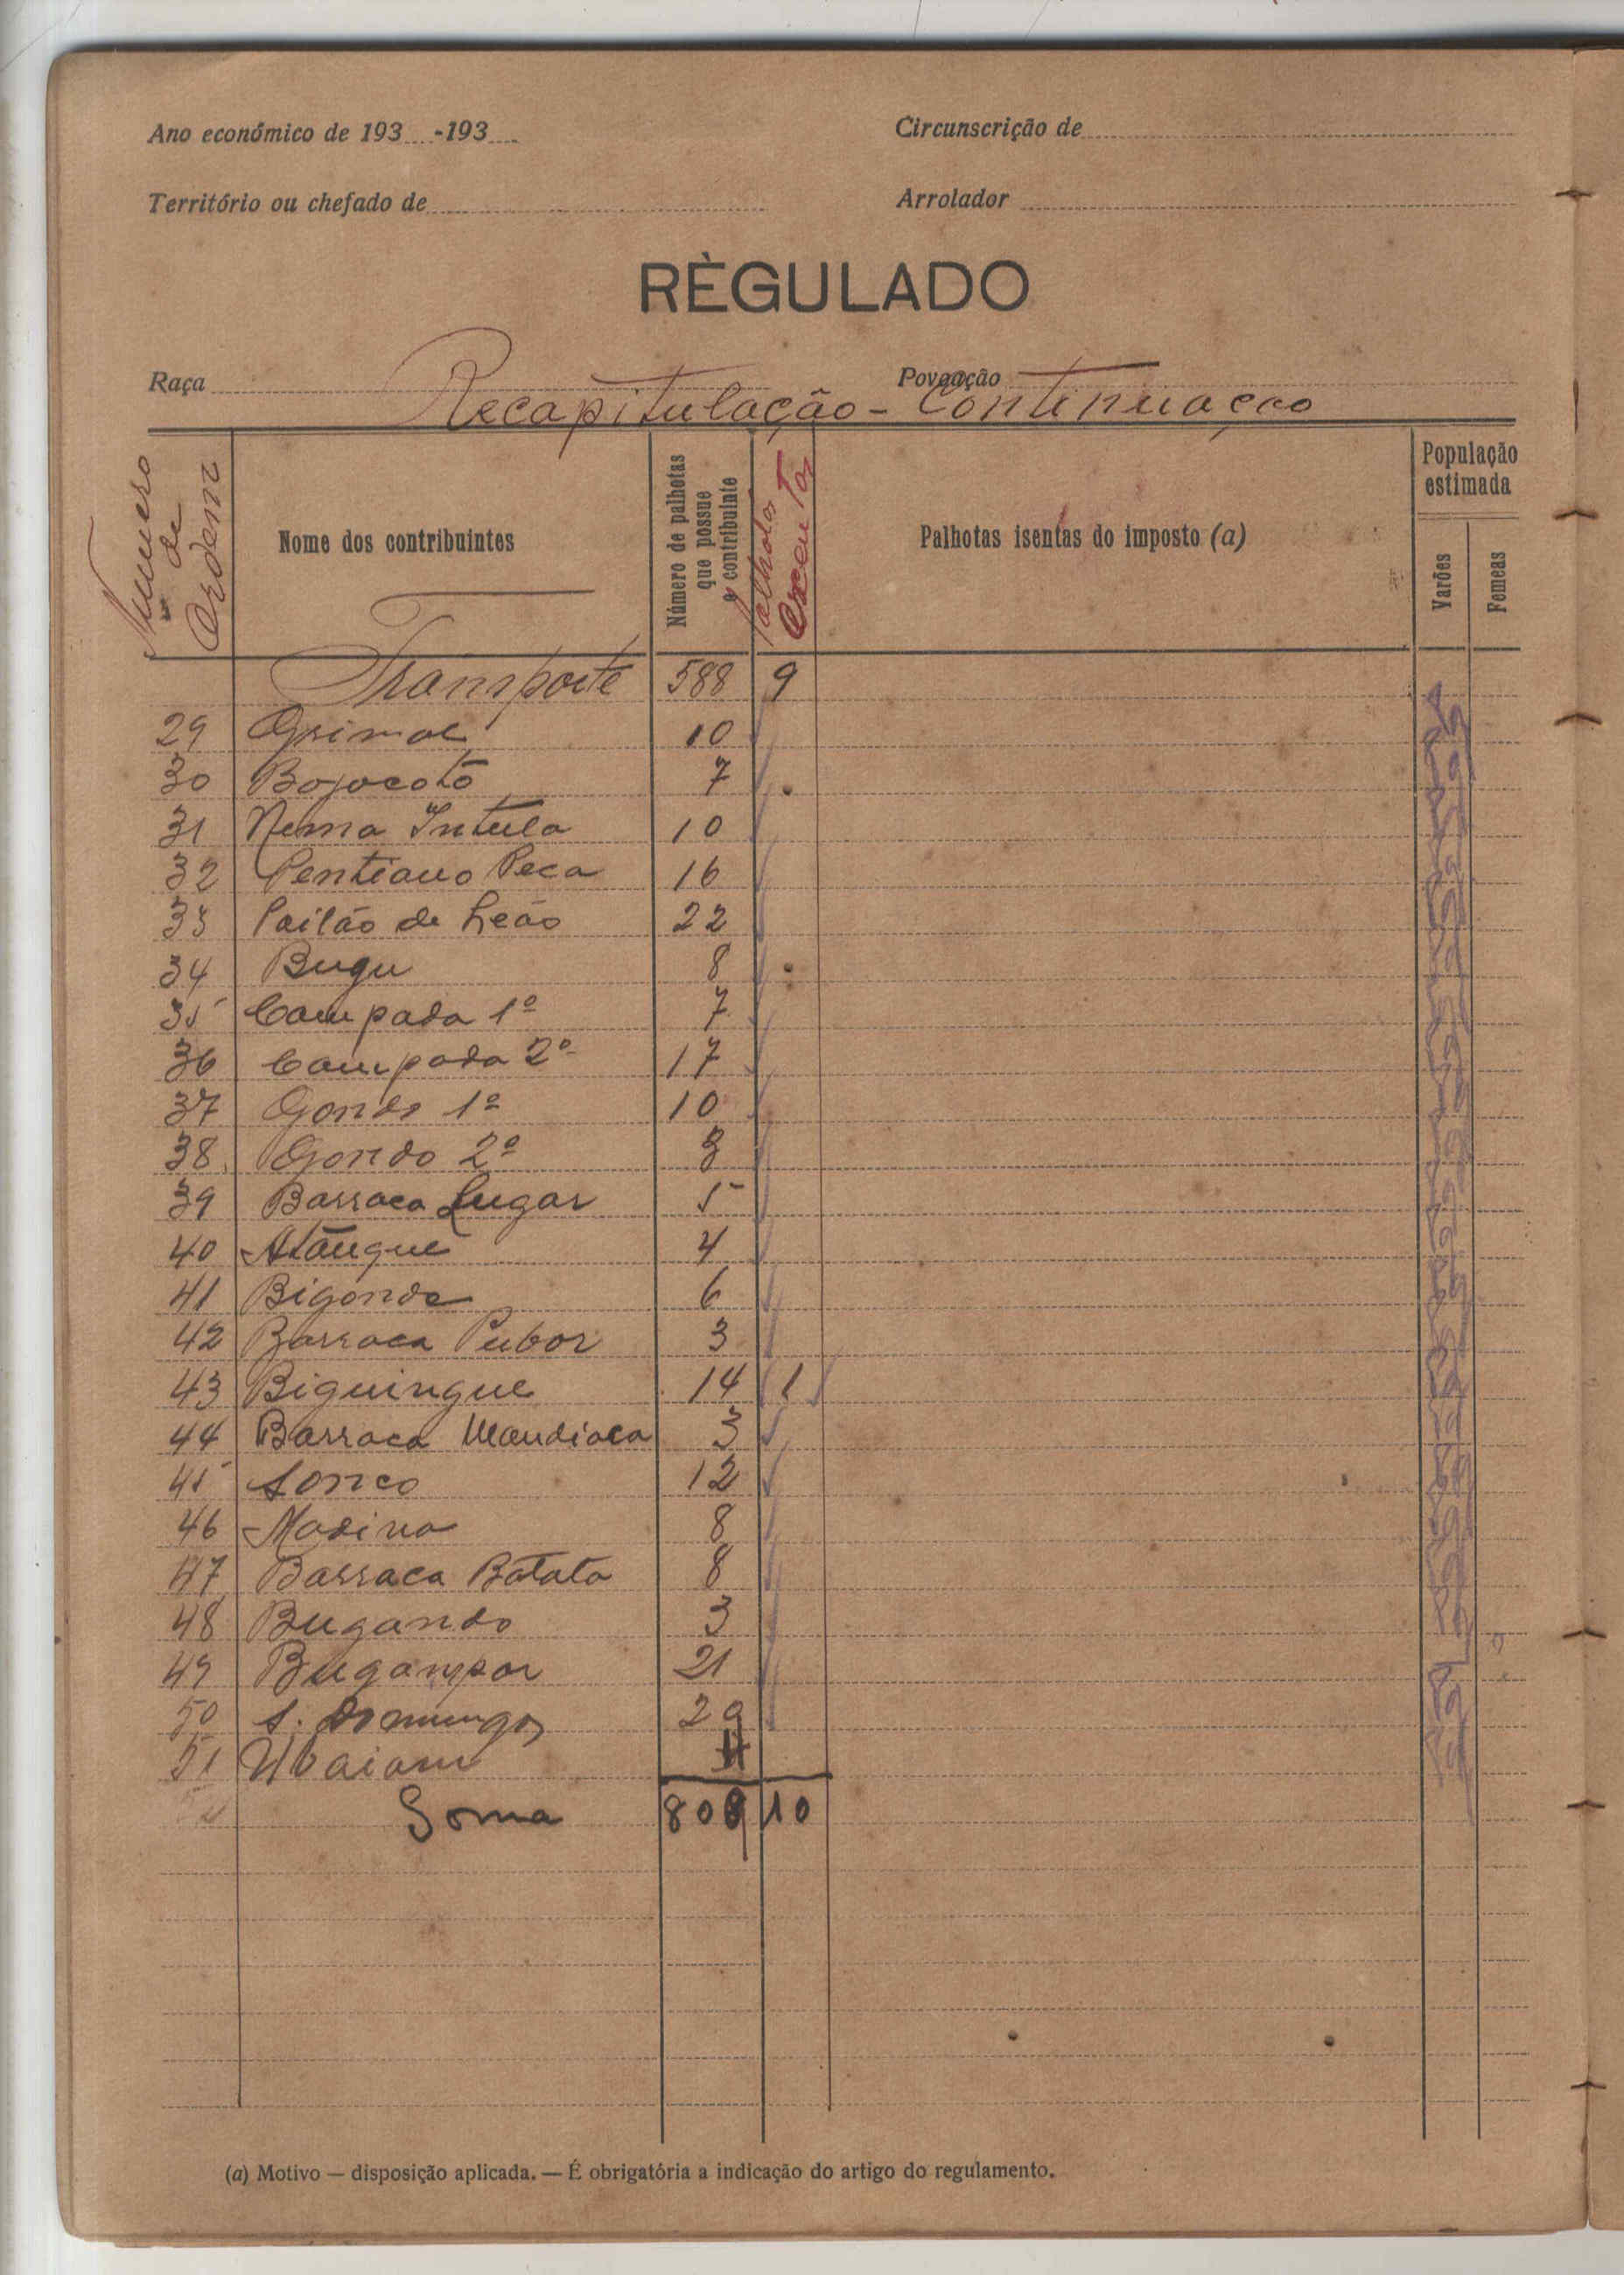 Ano económico de 193 -193
Circunscrição de
Território ou chefado de
Arrolador
RÈGULADO
Raça
Povoação
Recapitulação - Continuação
Numero de Ordem
Nome dos contribuintes
Número de palhotas que possue o contribuinte
Palhotas
Palhotas isentas do imposto (a)
População estimada
Varões
Femeas
Transporte 588 9
29 10
30 Bojocotô 7
31 Nema Intula 10
32 Pentiano Peca 16
33 Pailão de Leão 22
34 Bugu 8
35 Campada 1º 7
36 Campada 2º 17
37 Gondo 1º 10
38 Gondo 2º
39 Barraca Lugar 5
40 Atângue 4
41 Bigonda 6
42 Barraca Pubor 3
43 Biguingue 14 1
44 Barraca Mandioca 3
45 Sonco 12
46 Madina 8
47 Barraca Batata 8
48 Bugando 3
49 Bugampor 21
50 S. Domingos
51
Soma 809 10
(a) Motivo — disposição aplicada. — É obrigatória a indicação do artigo do regulamento.